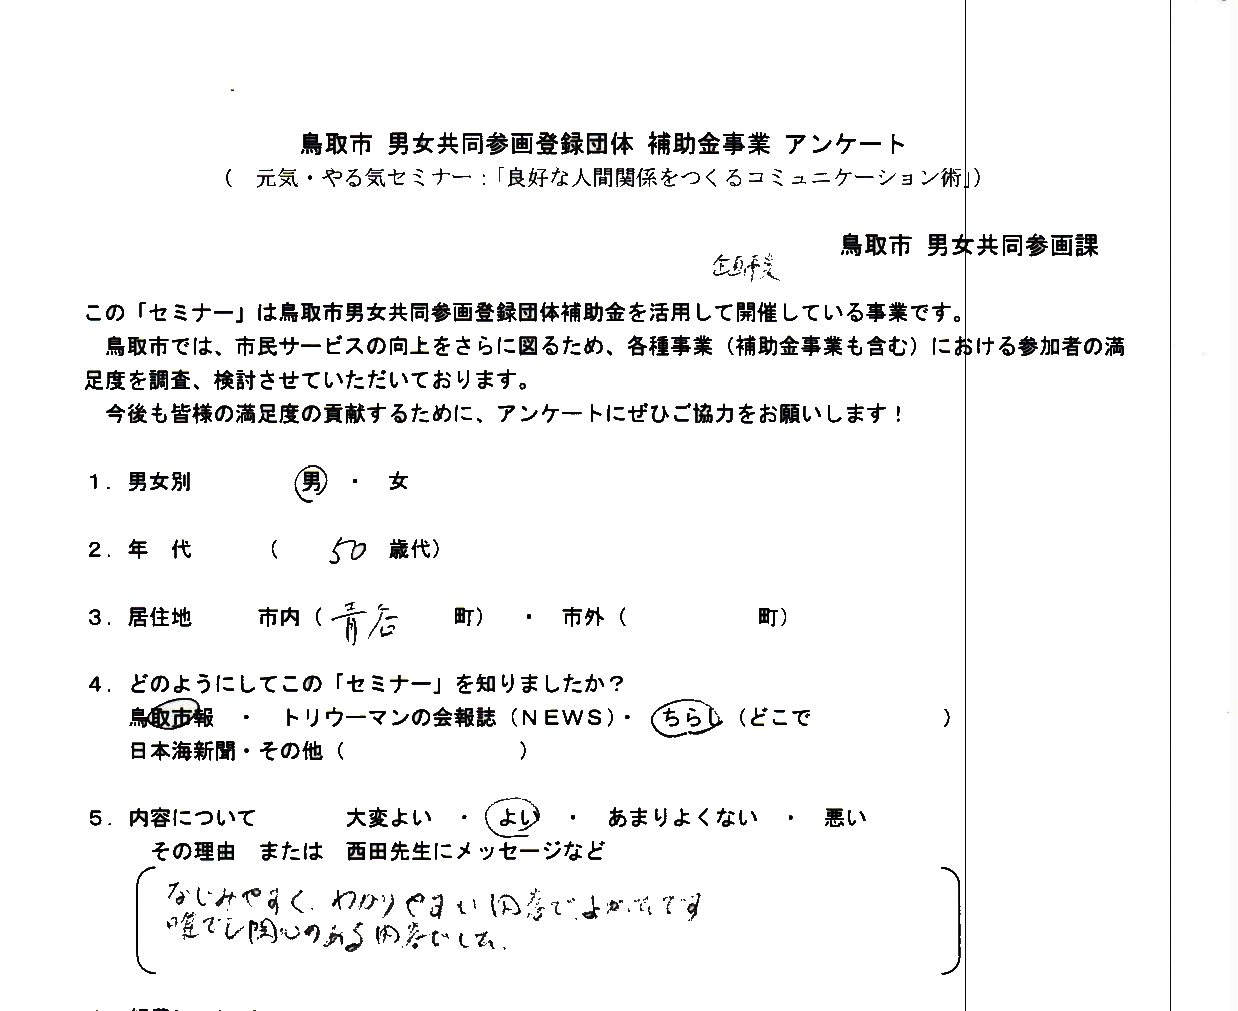 鳥取市 男女共同参画登録団体 補助金事業 アンケート
（　元気・やる気セミナー：「良好な人間関係をつくるコミュニケーション術」）
鳥取市 男女共同参画課
この「セミナー」は鳥取市男女共同参画登録団体補助金を活用して開催している事業です。
鳥取市では、市民サービスの向上をさらに図るため、各種事業（補助金事業も含む）における参加者の満
足度を調査、検討させていただいております。
今後も皆様の満足度の貢献するために、アンケートにぜひご協力をお願いします！
１．男女別　男　・　女
２．年　代　（　50　歳代）
３．居住地　市内（青谷　町）　・　市外（　　町）
４．どのようにしてこの「セミナー」を知りましたか？
鳥取市報　・　トリウーマンの会報誌（ＮＥＷＳ）・　ちらし（どこで　　）
日本海新聞・その他（　　）
５．内容について　大変よい　・　よい　・　あまりよくない　・　悪い
その理由　または　西田先生にメッセージなど
なじみやすく、わかりやすい内容でよかったです
誰でも関心のある内容でした。